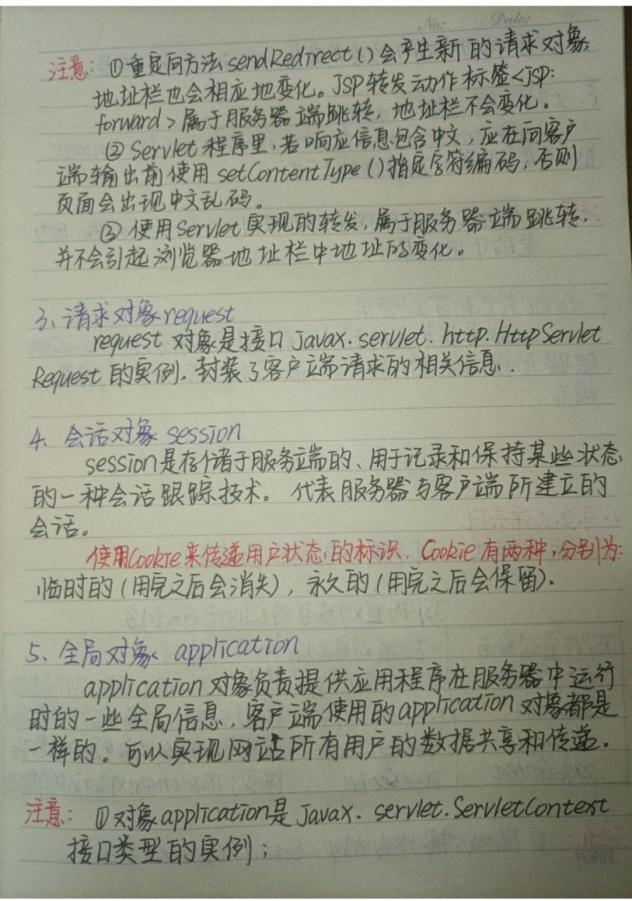 No: Date:
注意：①重定向方法sendRedirect()会产生新的请求对象,
地址栏也会相应地变化。JSP转发动作标签<jsp:
forward>属于服务器端跳转，地址栏不会变化。
② Servlet程序里,若响应信息包含中文，应在向客户
端输出前使用setContentType()指定字符编码，否则
页面会出现中文乱码。
③ 使用Servlet实现的转发，属于服务器端跳转，
并不会引起浏览器地址栏中地址的变化。
3、请求对象request
request 对象是接口 javax.servlet.http.HttpServlet
Request 的实例,封装了客户端请求的相关信息.
4、会话对象 session
session是存储于服务端的、用于记录和保持某些状态
的一种会话跟踪技术。代表服务器与客户端所建立的
会话。
使用Cookie来传递用户状态的标识，Cookie有两种,分别为:
临时的(用完之后会消失)，永久的(用完之后会保留).
5、全局对象 application
application对象负责提供应用程序在服务器中运行
时的一些全局信息，客户端使用的application对象都是
一样的。可以实现网站所有用户的数据共享和传递.
注意：①对象application是javax.servlet.ServletContext
接口类型的实例；